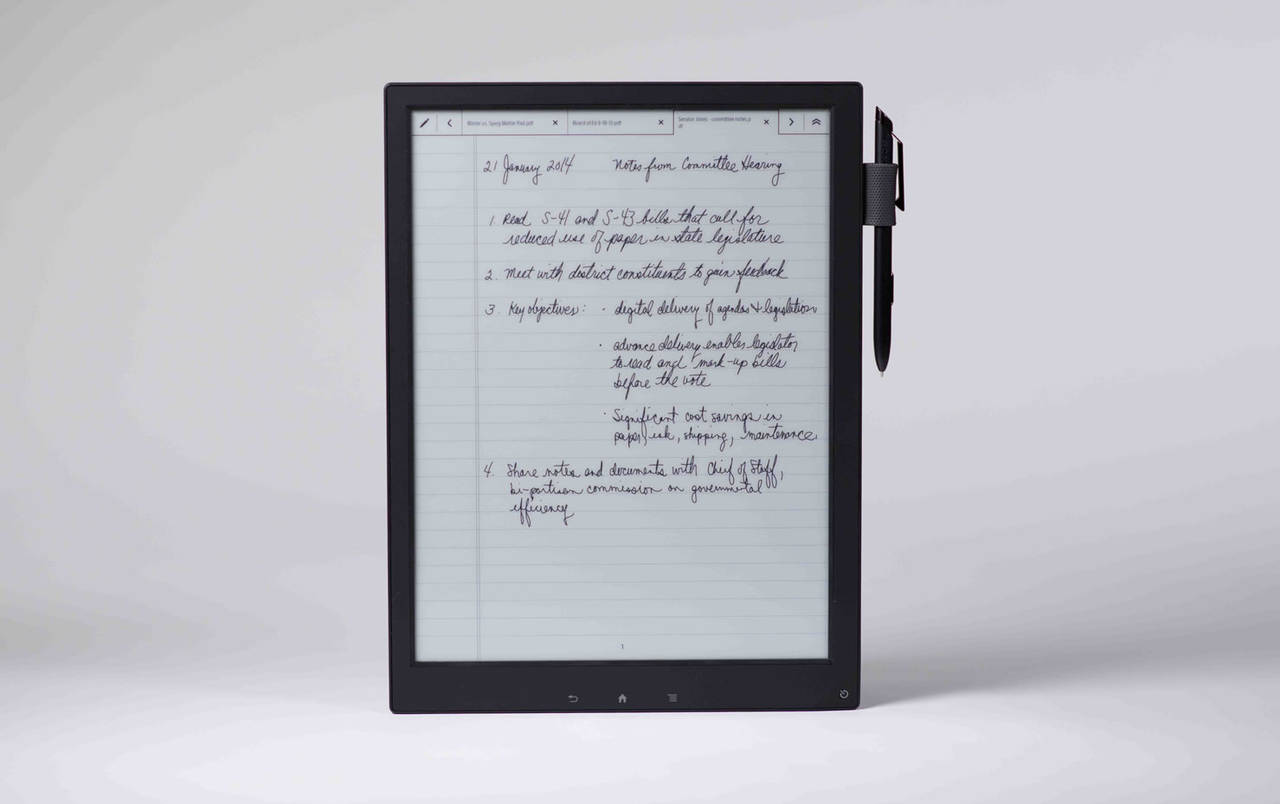 Board of Ed 9-18-13.pdf
Senator Jones - committee notes.p
df
21 January 2014 Notes from Committee Hearing
1. Read S-41 and S-43 bills that call for
reduced use of paper in state legislature
2. Meet with district constituents to gain feedback
3. Key objectives: • digital delivery of agendas & legislation
• advance delivery enables legislator
to read and mark-up bills
before the vote
• Significant cost savings in
paper, ink, shipping, maintenance
4. Share notes and documents with Chief of Staff,
bi-partisan commission on governmental
efficiency
1